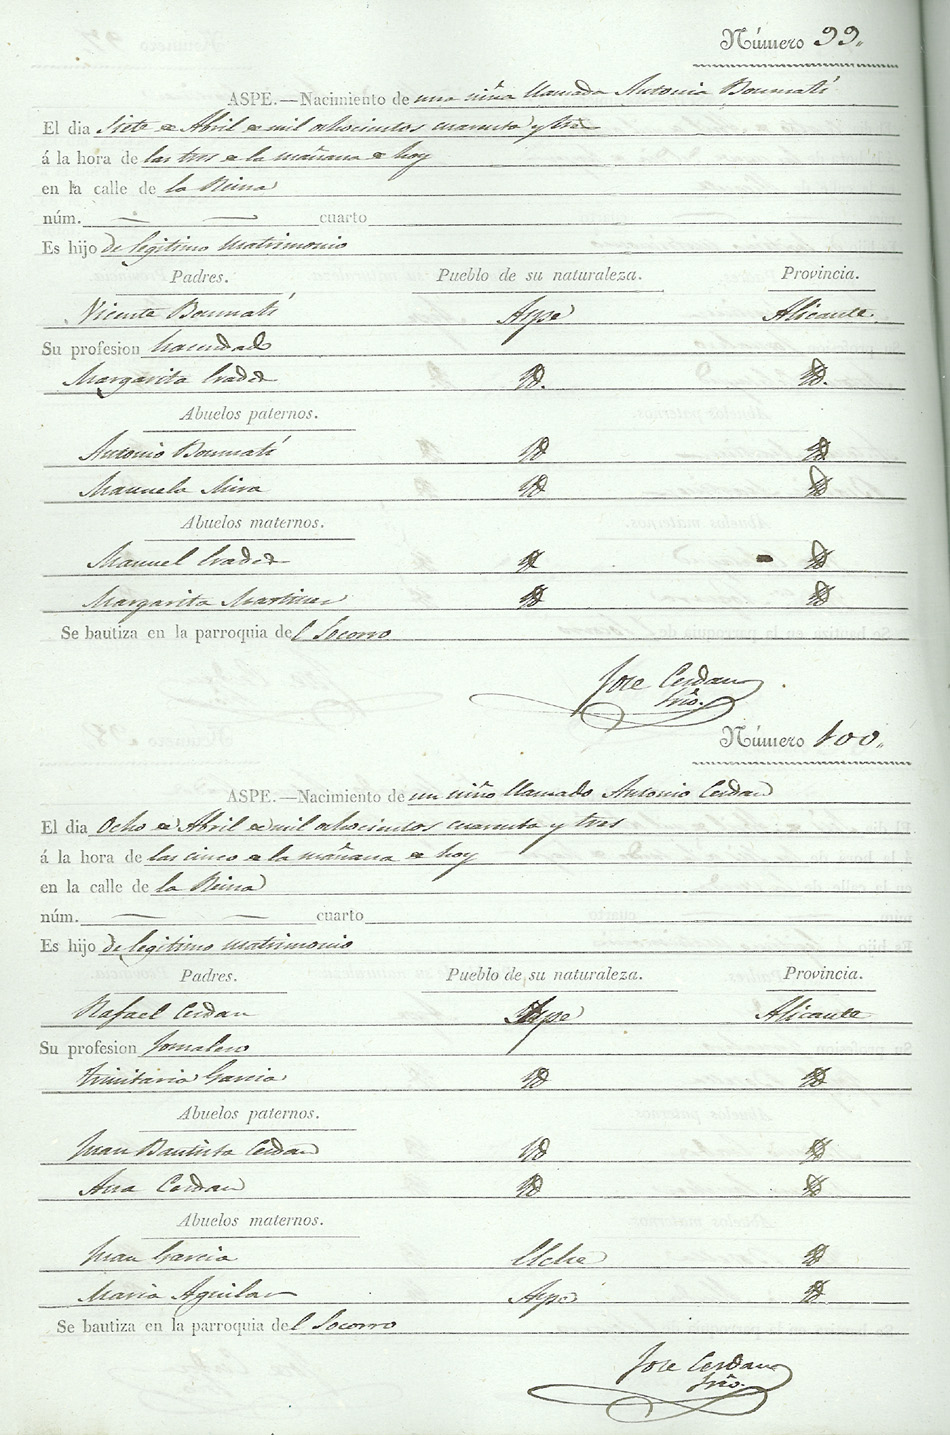 Número 99.
ASPE.—Nacimiento de una niña llamada Antonia Boumatí
El dia Siete de Abril de mil ochocientos cuarenta y tres
á la hora de las tres de la mañana de hoy
en la calle de la Reina
núm. cuarto
Es hijo de legitimo matrimonio
Padres. Pueblo de su naturaleza. Provincia.
Vicente Boumatí Aspe Alicante.
Su profesion hacendado
Margarita Id. Id.
Abuelos paternos.
Antonio Boumatí Id Id
Manuela Mira Id Id
Abuelos maternos.
Manuel Id Id
Margarita Martinez Id Id
Se bautiza en la parroquia del Socorro
Jose Cerdan
Srio.
Número 100.
ASPE.—Nacimiento de un niño llamado Antonio Cerdan
El dia Ocho de Abril de mil ochocientos cuarenta y tres
á la hora de las cinco de la mañana de hoy
en la calle de la Reina
núm. cuarto
Es hijo de legitimo matrimonio
Padres. Pueblo de su naturaleza. Provincia.
Rafael Cerdan Aspe Alicante
Su profesion Jornalero
Trinitaria Garcia Id Id
Abuelos paternos.
Juan Bautista Cerdan Id Id
Ana Cerdan Id Id
Abuelos maternos.
Juan Garcia Elche Id
Maria Aguilar Aspe Id
Se bautiza en la parroquia del Socorro
Jose Cerdan
Srio.